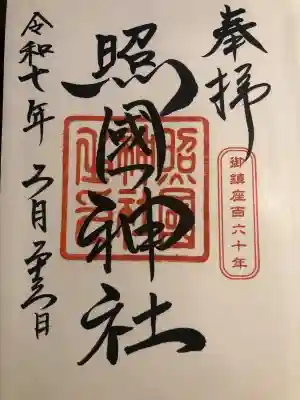 奉拝
御鎮座百六十年
照國神社
令和七年 二月 二十六日